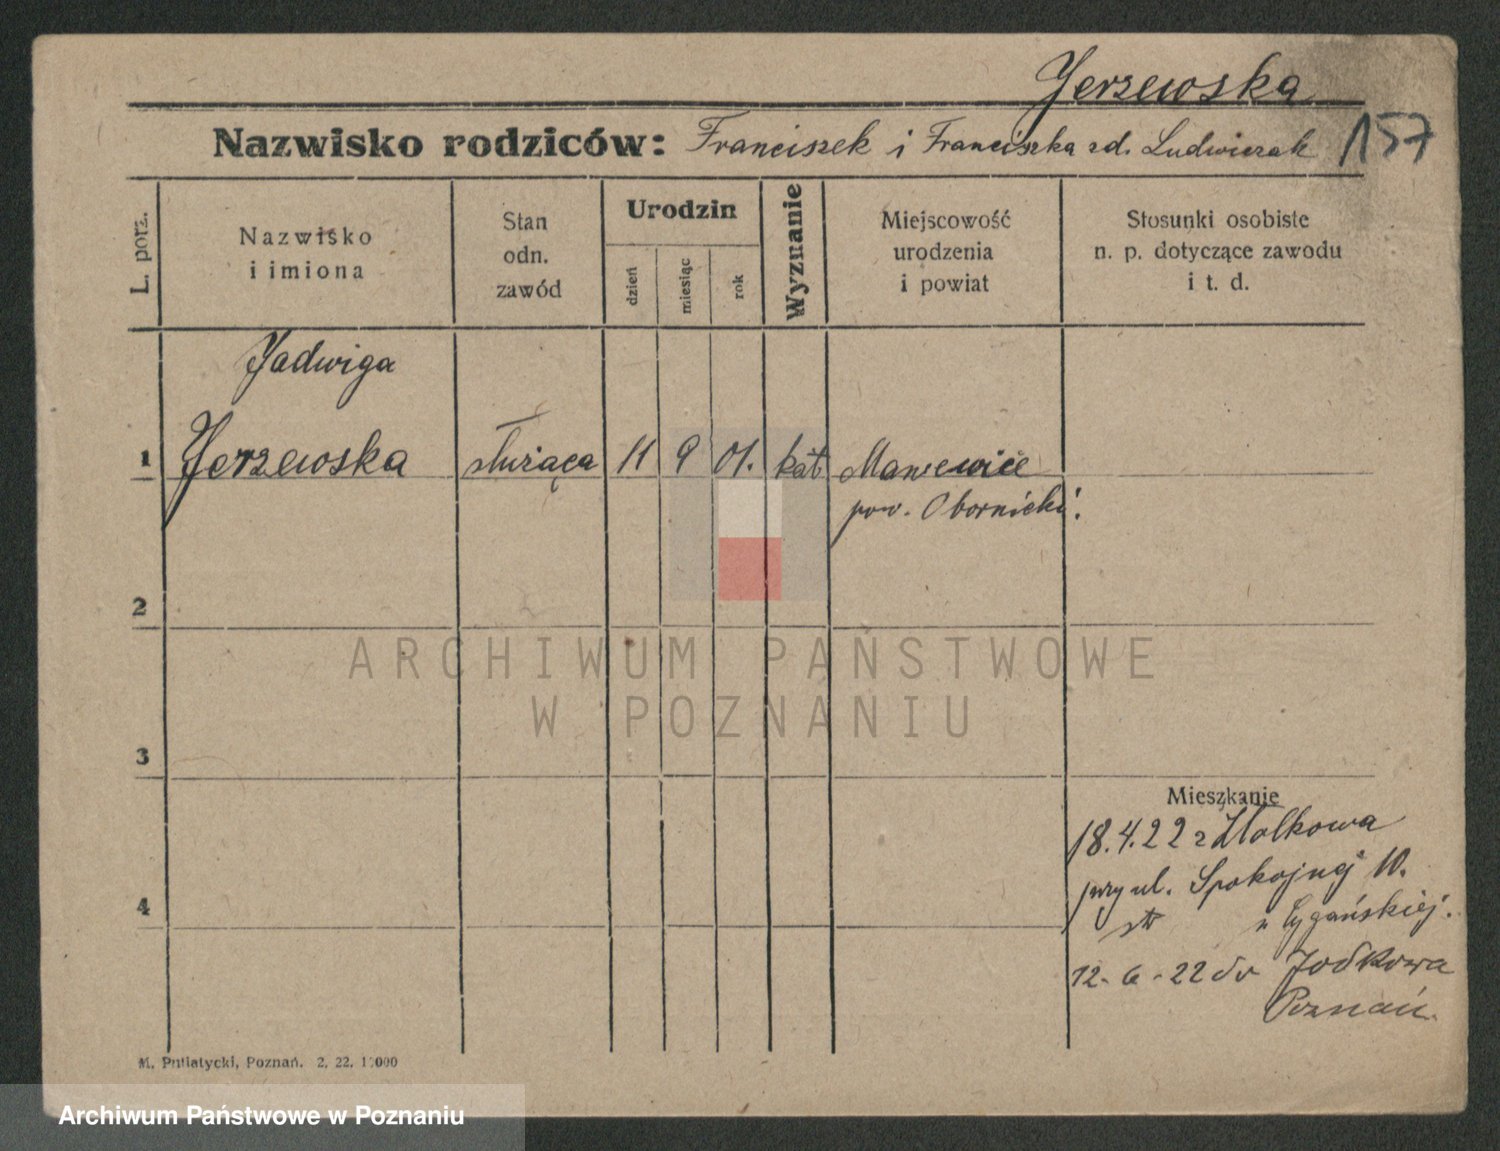 Jerzewska
Nazwisko rodziców: Franciszek i Franciszka zd. Ludwiczak 157
L. porz.
Nazwisko
i imiona
Stan
odn.
zawód
Urodzin
dzień
miesiąc
rok
Wyznanie
Miejscowość
urodzenia
i powiat
Stosunki osobiste
n. p. dotyczące zawodu
i t. d.
Jadwiga
1 Jerzewska służąca 11 9 01. kat
pow. Obornicki
2
ARCHIWUM PAŃSTWOWE
W POZNANIU
3
Mieszkanie
18.4.22 z
przy ul. Spokojnej 10.
4
u Cygańskiej.
12-6-22 do
Poznań.
M. Putiatycki, Poznań. 2, 22.
Archiwum Państwowe w Poznaniu